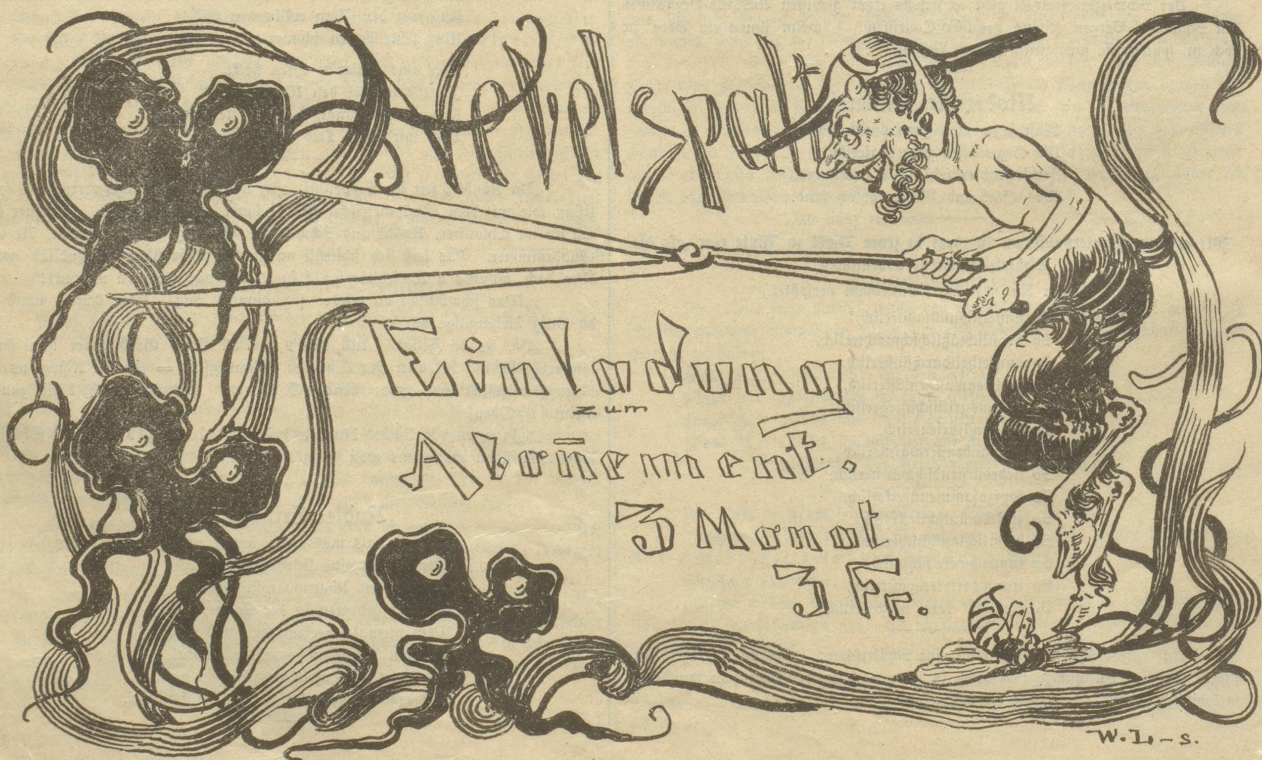 Nebelspalter
Einladung
zum
Abon̄ement.
3 Monat
3 Fr.
W. L-s.